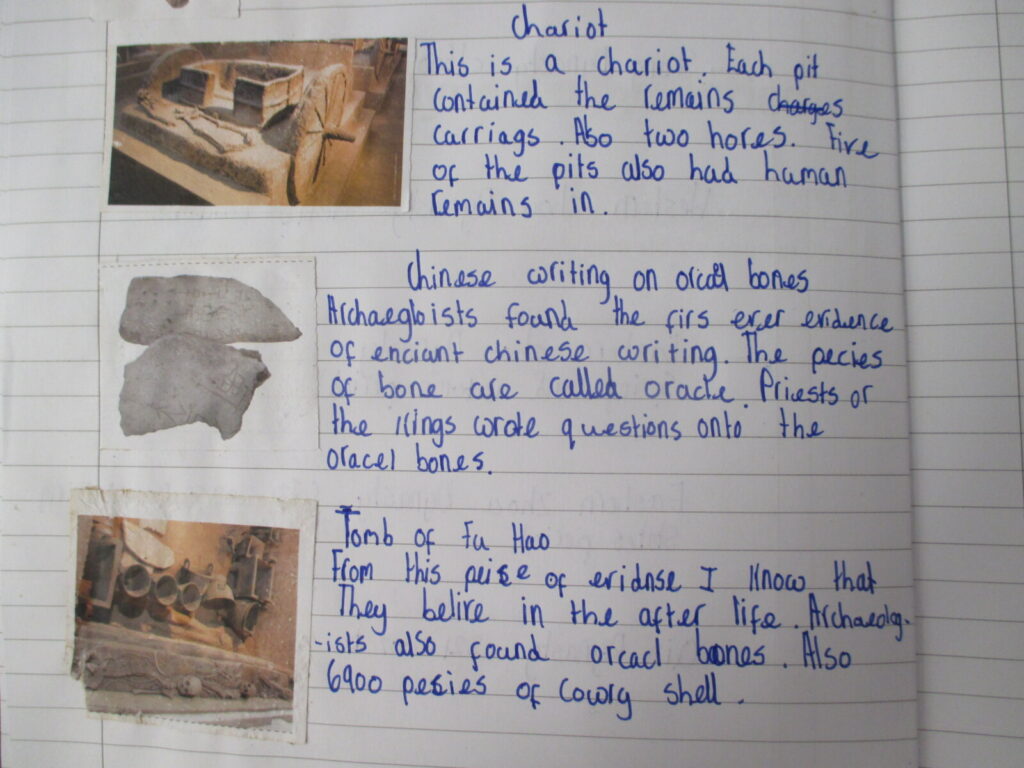 Chariot
This is a chariot. Each pit
contained the remains charges
carriags. Also two hores. Five
of the pits also had human
remains in.
Chinese writing on oracal bones
Archaegloists found the firs ever evidence
of enciant chinese writing. The pecies
of bone are called oracle. Priests or
the Kings wrote questions onto the
oracel bones.
Tomb of Fu Hao
From this peice of evidnse I know that
They belive in the after life. Archaeolog-
-ists also found orcacl bones. Also
6900 pecies of Cowry shell.